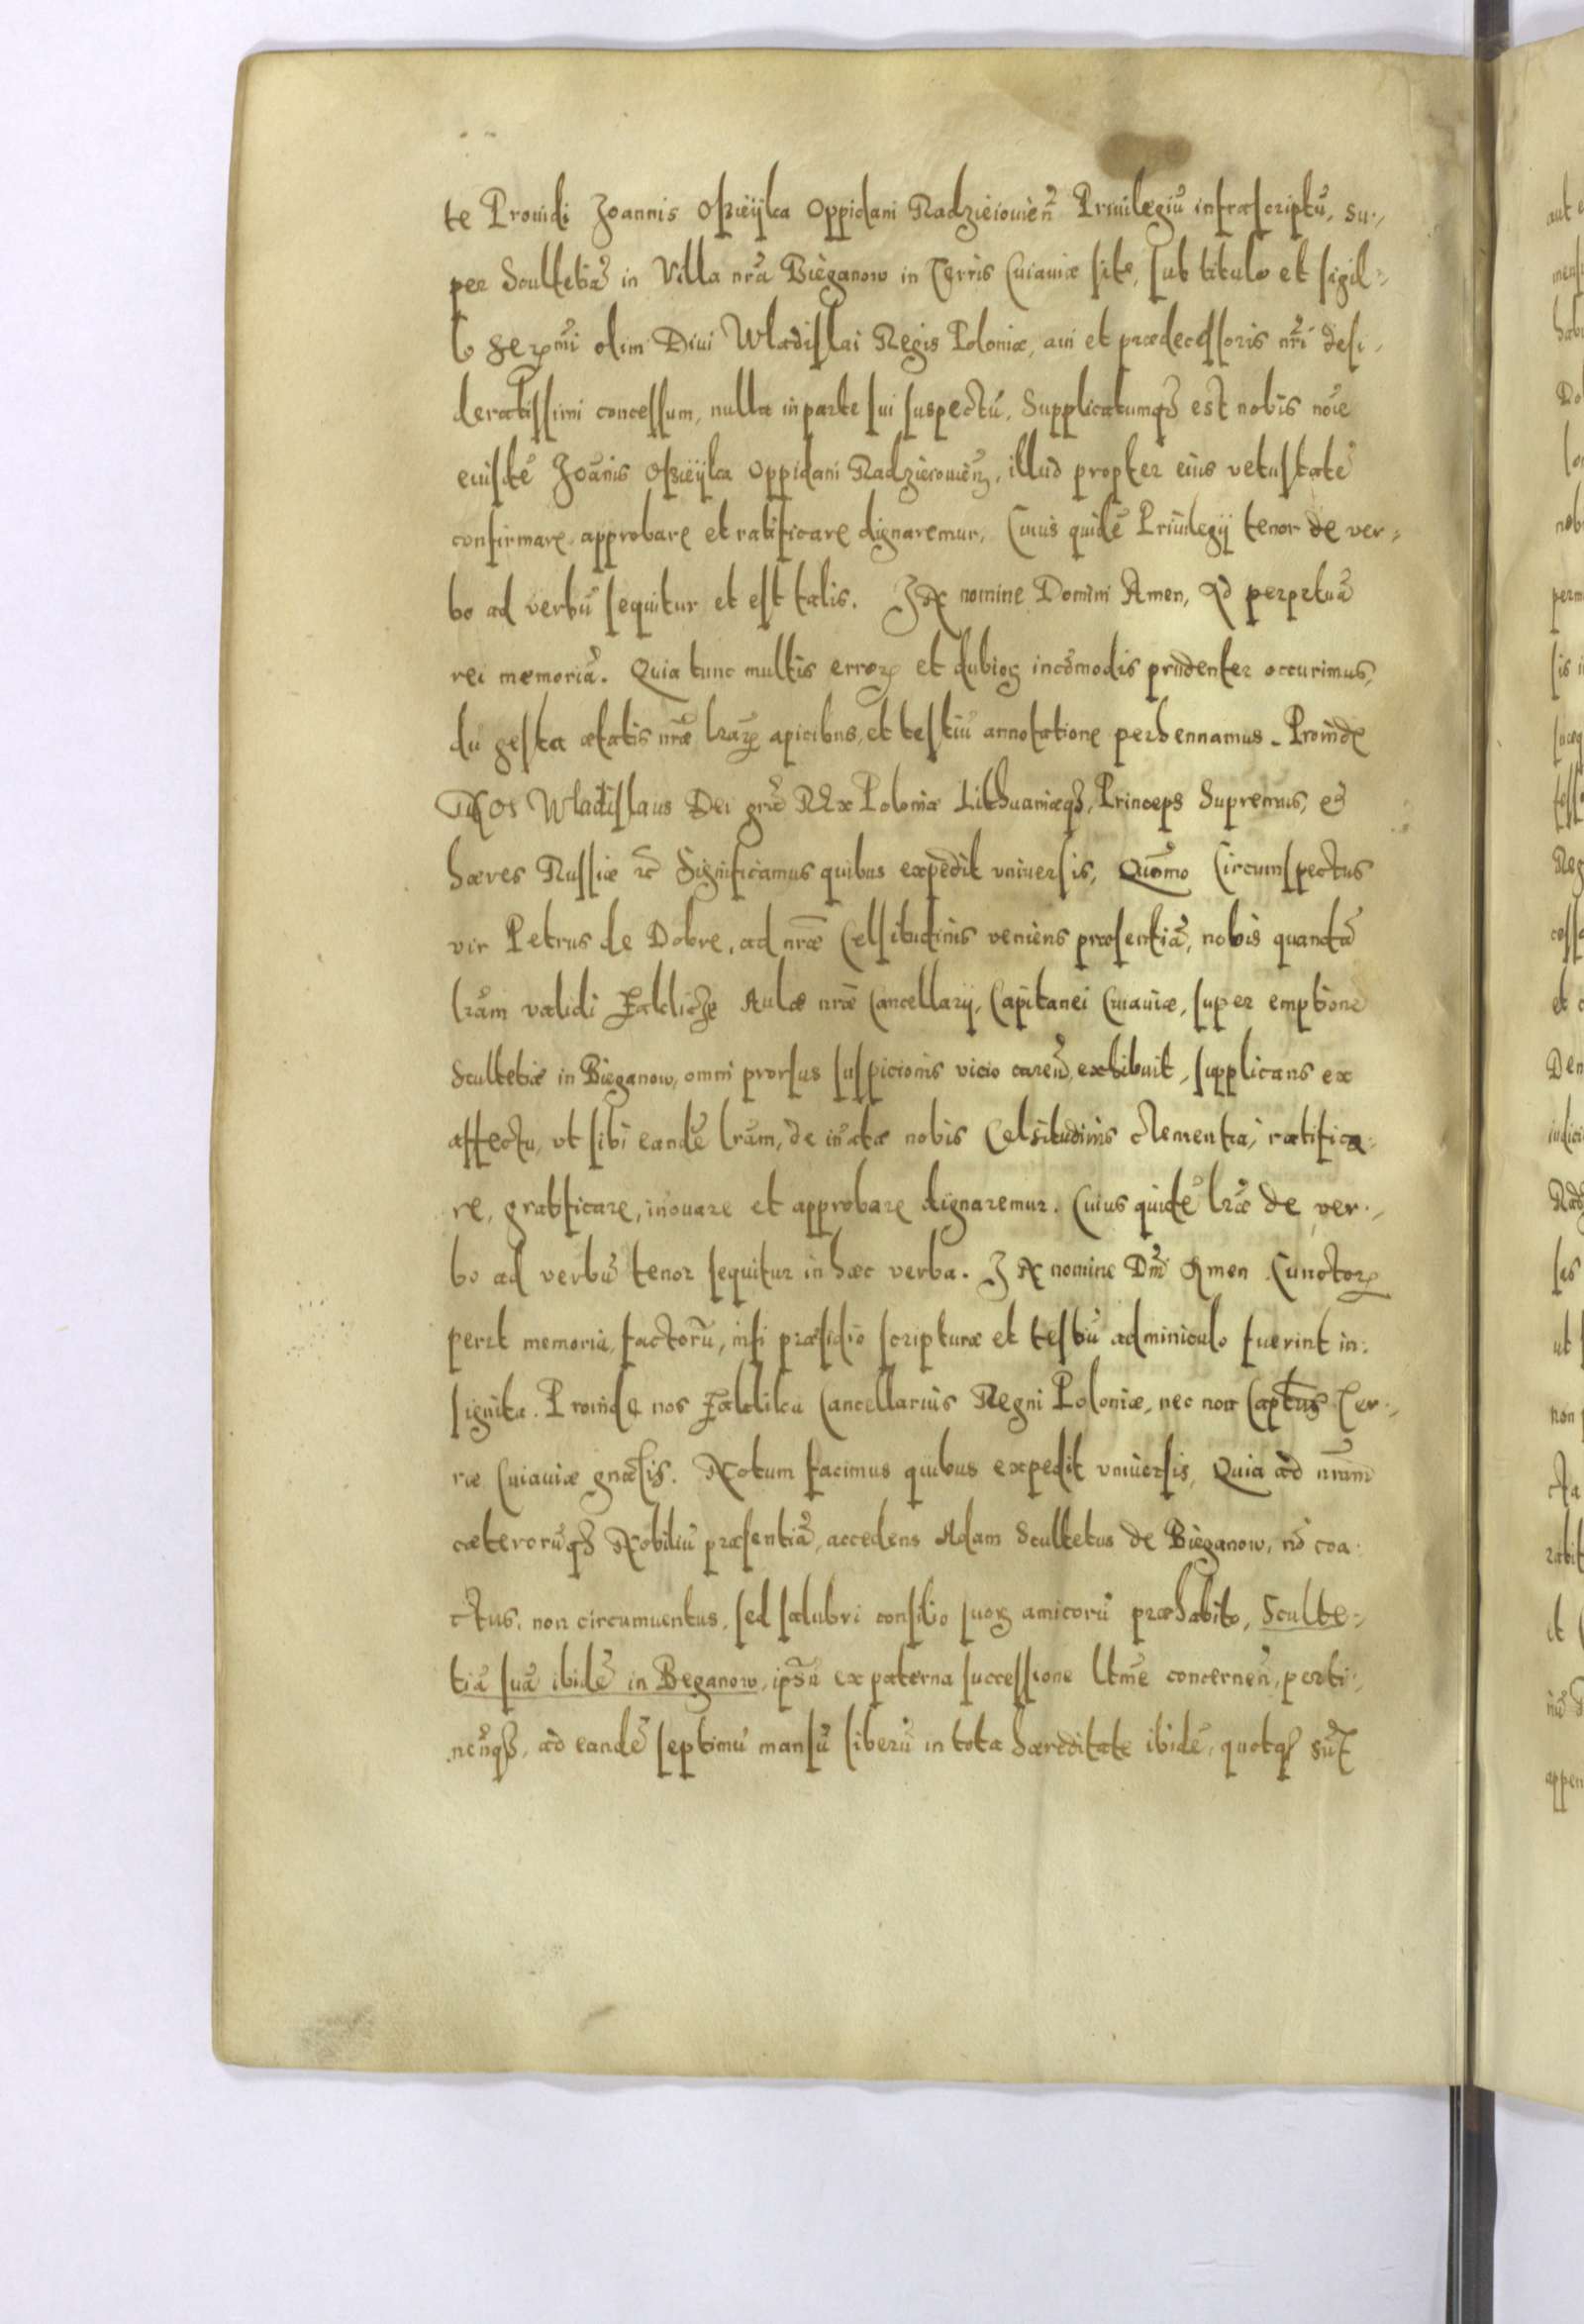 te Prouidi Joannis Oszieyka Oppidani Radzieiouien̄ Priuilegiū infrascriptū, su-
per Scultetiā in Villa nr̄a Bieganow in Terris Cuiauiæ sitē, sub titulo et sigil-
lo Serꝫmi olim Diui Wladislai Regis Poloniæ, aui et prædecessoris nr̄i desi-
deratissimi concessum, nulla in parte sui suspectū. Supplicatumqꝫ est nobis noīe
eiusdē Joānis Oszieyka Oppidani Radzieiouien̄, illud propter eius vetustatē
confirmare approbare et ratificare dignaremur. Cuius quidē Priuilegij tenor de ver-
bo ad verbū sequitur et est talis. IN nomine Domini Amen, Ad perpetuā
rei memoriā. Quia tunc multis erroꝝ et dubioꝝ incōmodis prudenter occurimus,
dū gesta ætatis nr̄æ lr̄aꝝ apicibus, et testiū annotatione perhennamus. Proinde
NOS Wladislaus Dei gr̄a REx Poloniæ Lithuaniæqꝫ Princeps Supremus, et
hæres Russiæ ꝛc̄ Significamus quibus expedit vniuersis, Quōmo Circumspectus
vir Petrus de Dobre, ad nr̄æ Celsitudinis veniens præsentiā, nobis quandā
lr̄am validi Zaklicze Aulæ nr̄æ Cancellarij, Capitanei Cuiauiæ, super emptione
Scultetiæ in Bieganow, omni prorsus suspicionis vicio caren̄, exhibuit, supplicans ex
affectu, vt sibi eandē lr̄am, de in̄ata nobis Celsitudinis clementia, ratifica-
re, gratificare, in̄ouare et approbare dignaremur. Cuius quidē lr̄æ de ver-
bo ad verbū tenor sequitur in hæc verba. IN nomine Dn̄i Amen Cunctoꝝ
perit memoria, factorū, nisi præsidio scripturæ et testiū adminiculo fuerint in-
signita. Proinde nos Zaklika Cancellarius Regni Poloniæ, nec non Captus Ter-
ræ Cuiauiæ gnālis. Notum facimus quibus expedit vniuersis, Quia ad nr̄am
cæterorūqꝫ Nobiliū præsentiā, accedens Adam Scultetus de Bieganow, nō coa-
ctus, non circumuentus, sed salubri consilio suoꝝ amicorū præhabito, Sculte-
tiā suā ibidē in Beganow, ipsū ex paterna successione ltm̄e concernen̄, perti-
nen̄qꝫ, ad eandē septimū mansū liberū in tota hæreditate ibidē, quotqꝫ sūt